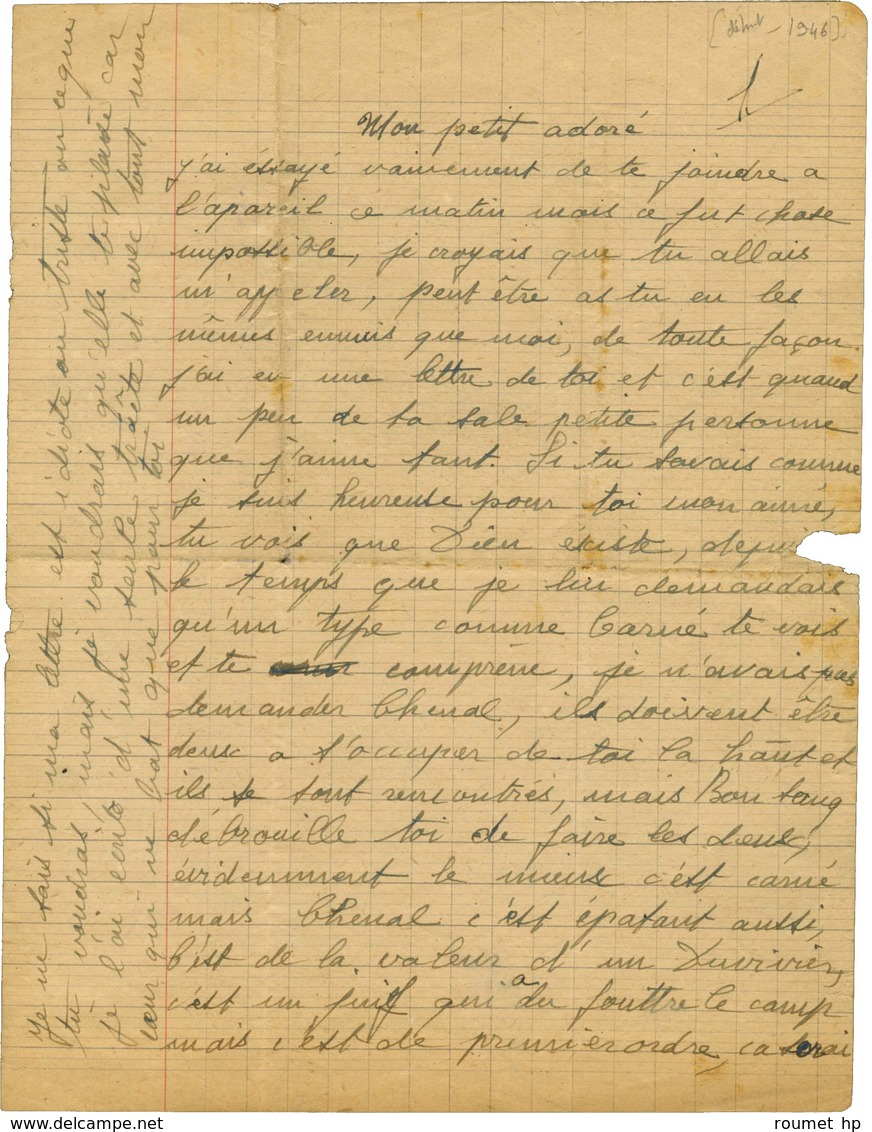 [début 1946]
1
Mon petit adoré
j'ai éssayé vainement de te joindre a
l'apareil ce matin mais ce fut chose
impossible, je croyais que tu allais
m'appeler, peut être as tu eu les
mêmes ennuis que moi, de toute façon
j'ai eu une lettre de toi et c'est quand
un peu de ta sale petite personne
que j'aime tant. Si tu savais comme
je suis heureuse pour toi mon aimé,
tu vois que Dieu éxiste, depuis
le temps que je lui demandais
qu'un type comme Carné te vois
et te comprène, je n'avais pas
demander Chenal, ils doivent être
deux a s'occuper de toi la haut et
ils se sont rencontrés, mais Bon sang
débrouille toi de faire les deux,
évidemment le mieux c'est carné
mais Chenal c'est épatant aussi,
C'est de la valeur d'un Duvivier,
c'est un juif qui a du fouttre le camp
mais c'est de premier ordre, ca serai
Je ne sais si ma lettre est idiote ou triste ou ce que
tu voudras, mais je voudrais qu'elle te plaise car
je l'ai écrite d'une seule traite et avec tout mon
cœur qui ne bat que pour toi
roumet hp